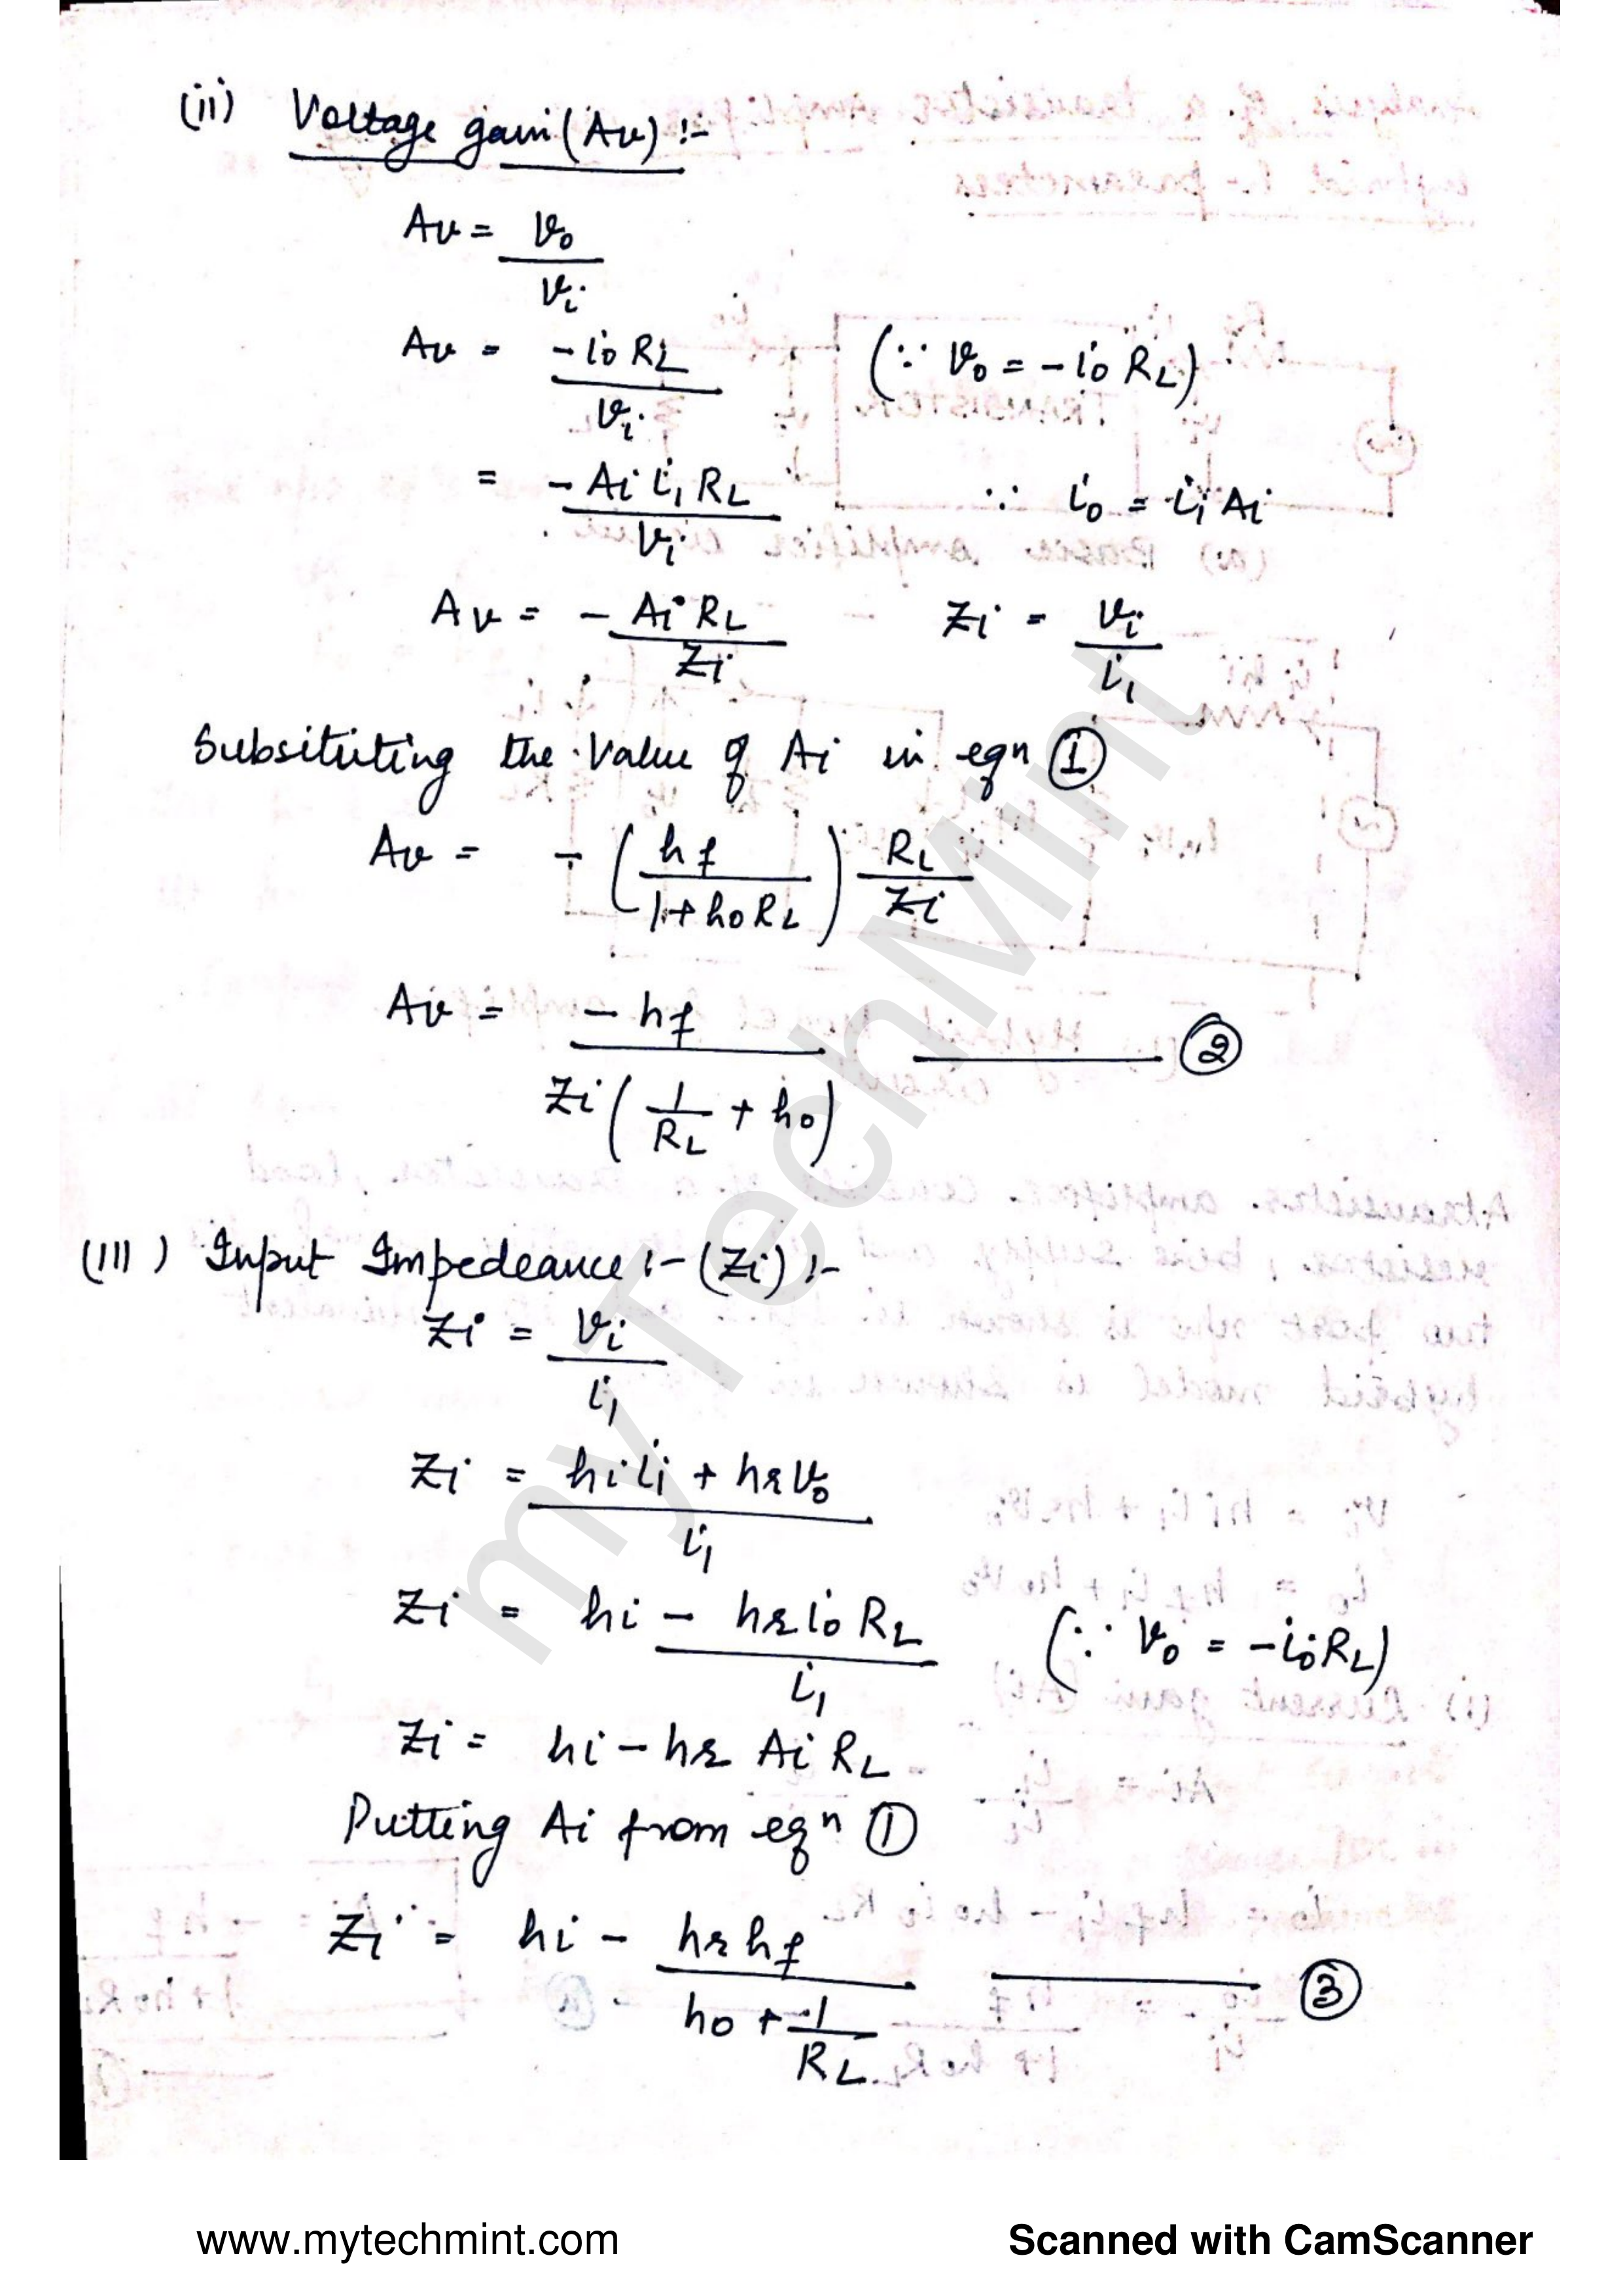 (ii) Voltage gain (Av) :-
Av = vo / vi
Av = -io RL / vi (∵ vo = -io RL)
= -Ai i1 RL / vi ∵ io = i1 Ai
Av = - Ai RL / Zi Zi = vi / i1
Subsituting the value of Ai in eqn ①
Av = - (hf / 1+hoRL) RL / Zi
Av = -hf / Zi (1/RL + ho) ②
(III) Input Impedeance :- (Zi) :-
Zi = vi / i1
Zi = hi i1 + hr vo / i1
Zi = hi - hr io RL / i1 (∵ vo = -io RL)
Zi = hi - hr Ai RL
Putting Ai from eqn ①
Zi = hi - hr hf / ho + 1/RL ③
myTechMint
www.mytechmint.com Scanned with CamScanner